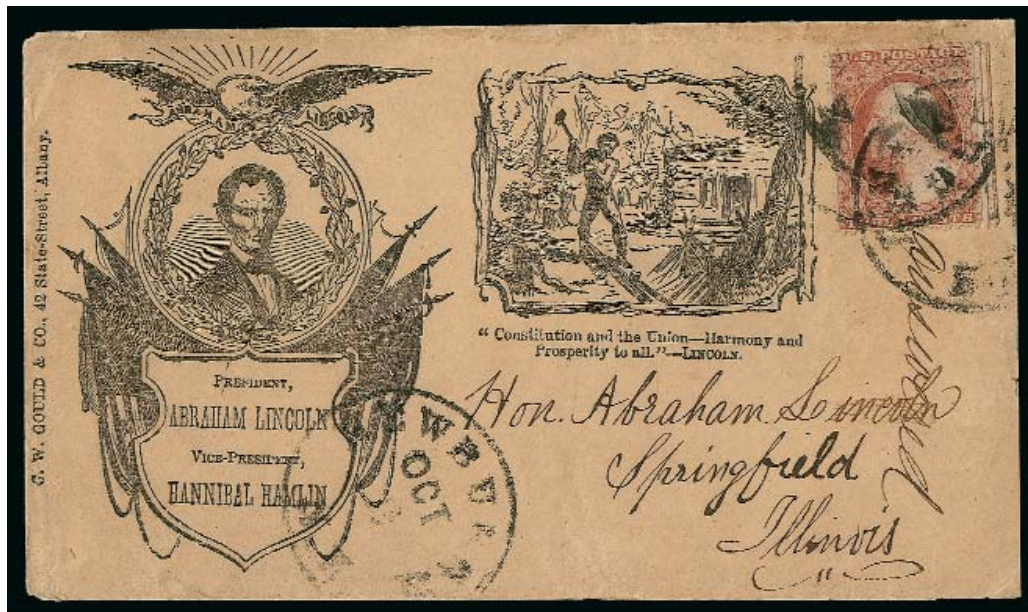 G. W. GOULD & CO., 42 State-Street, Albany.
ABRAHAM LINCOLN
PRESIDENT,
ABRAHAM LINCOLN
VICE-PRESIDENT,
HANNIBAL HAMLIN
U.S. POSTAGE
“ Constitution and the Union—Harmony and
Prosperity to all.”—LINCOLN.
Hon. Abraham Lincoln
Springfield
Illinois
Answered
OCT